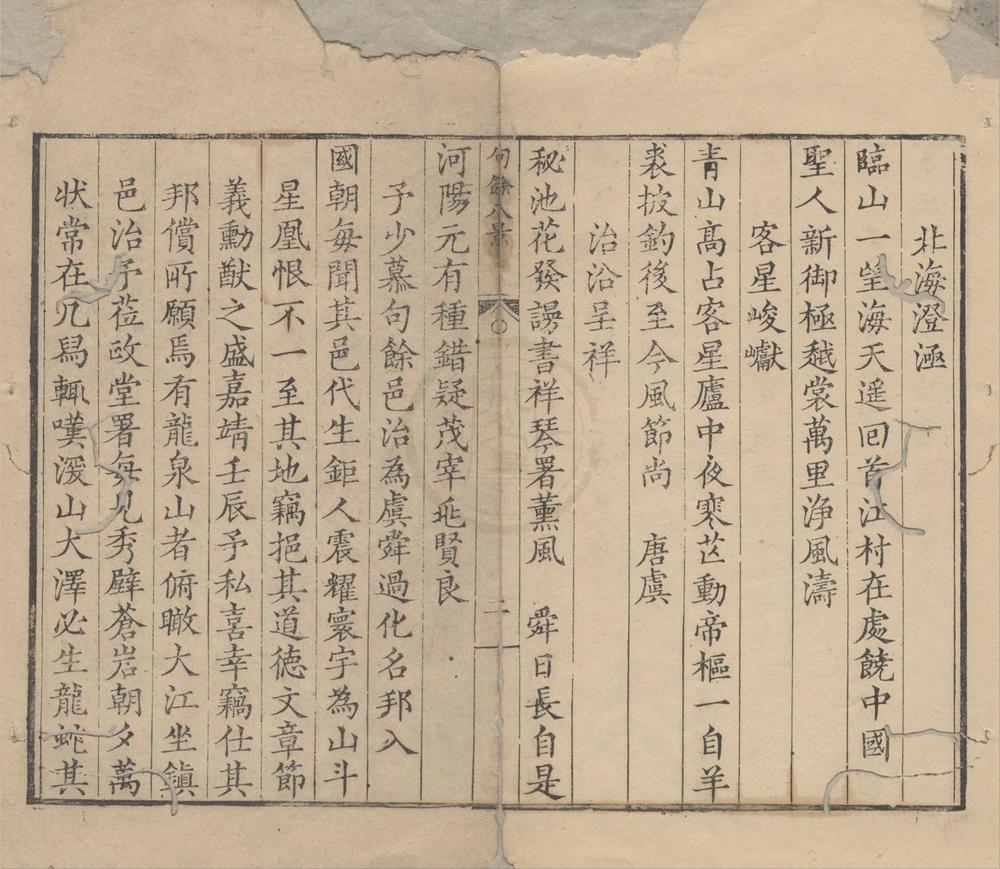 北海澄涵
臨山一望海天遥回首江村在處饒中國
聖人新御極越裳萬里浄風濤
客星峻巘
青山髙占客星廬中夜寒芒動帝樞一自羊
裘披釣後至今風節尚　唐虞
治沿呈祥
秘池花發謾書祥琴署薫風　舜日長自是
河陽元有種錯疑茂宰兆賢良
句餘八景
二
予少慕句餘邑治為虞舜過化名邦入
國朝毎聞其邑代生鉅人震耀寰宇為山斗
星凰恨不一至其地竊挹其道徳文章節
義勳猷之盛嘉靖壬辰予私喜幸竊仕其
邦償所願焉有龍泉山者俯瞰大江坐鎮
邑治予莅政堂署每見秀壁蒼岩朝夕萬
状常在几舄輒嘆深山大澤必生龍蛇其